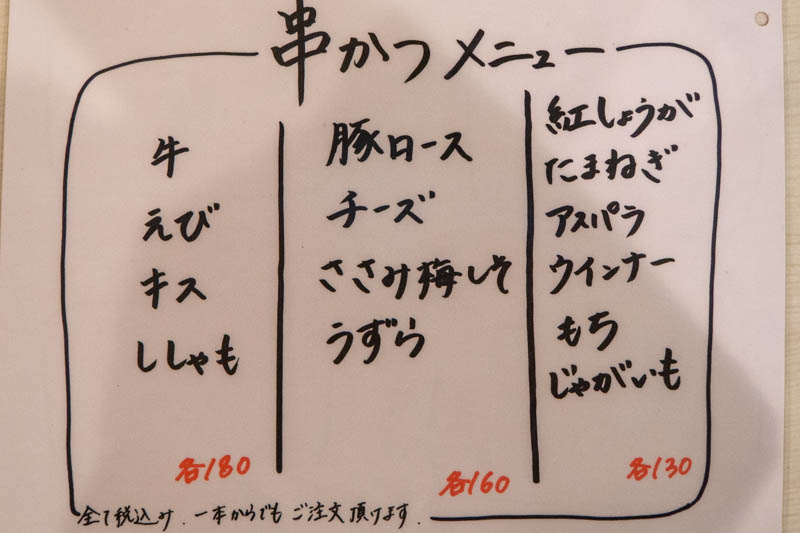 串かつメニュー
牛
えび
キス
ししゃも
各180
豚ロース
チーズ
ささみ梅しそ
うずら
各160
紅しょうが
たまねぎ
アスパラ
ウインナー
もち
じゃがいも
各130
全て税込み、一本からでもご注文頂けます。